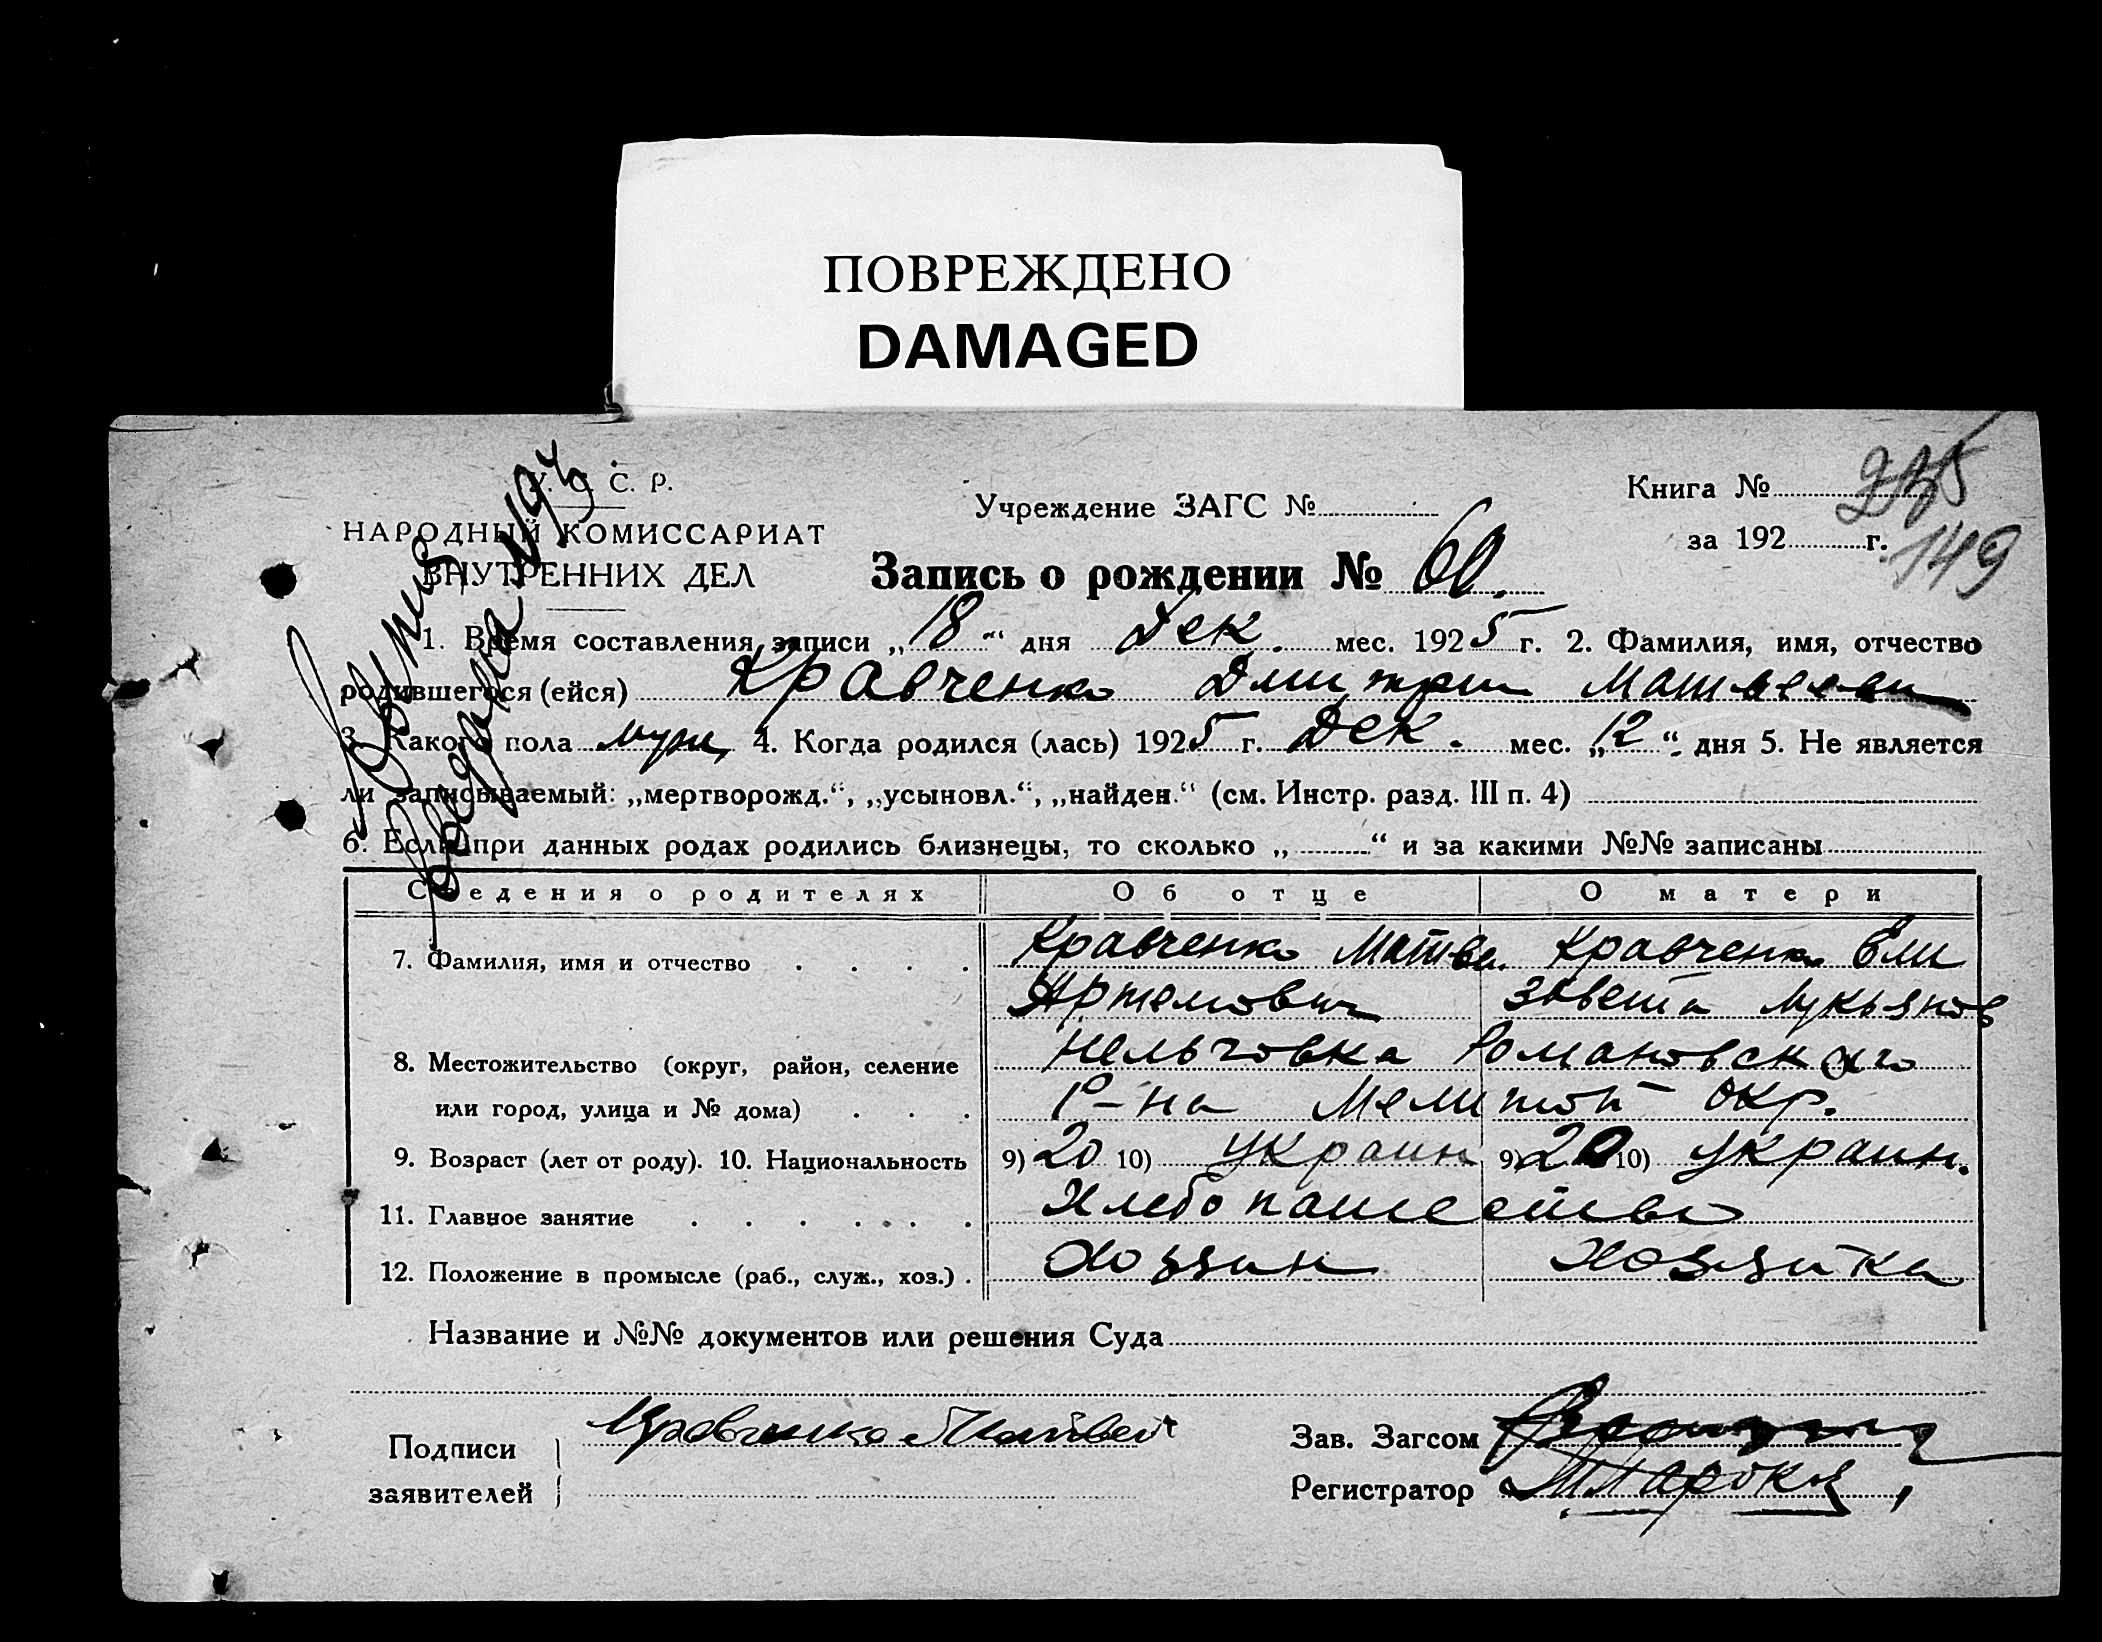 ПОВРЕЖДЕНО
DAMAGED
У. С. С. Р.
НАРОДНЫЙ КОМИССАРИАТ
ВНУТРЕННИХ ДЕЛ
Учреждение ЗАГС №
Книга №
за 192 г.
149
Запись о рождении № 60.
1. Время составления записи „18“ дня Дек. мес. 1925 г. 2. Фамилия, имя, отчество
родившегося (ейся) Кравченко Дмитрий Матвееви
3. Какого пола муж 4. Когда родился (лась) 1925 г. Дек. мес. „12“ дня 5. Не является
ли записываемый: „мертворожд.“, „усыновл.“, „найден.“ (см. Инстр. разд. III п. 4)
6. Если при данных родах родились близнецы, то сколько „ “ и за какими №№ записаны
Сведения о родителях Об отце О матери
7. Фамилия, имя и отчество Кравченко Матве. Кравченко Ели
Артемович завета Лукьянов
8. Местожительство (округ, район, селение Нельговка Романовского
или город, улица и № дома) Р-на Мелитоп окр.
9. Возраст (лет от роду). 10. Национальность 9) 20 10) Украин 9) 20 10) Украин.
11. Главное занятие Хлебопашество
12. Положение в промысле (раб., служ., хоз.) Хозяин Хозяйка
Название и №№ документов или решения Суда
Подписи Кравченко Матвей
заявителей
Зав. Загсом
Регистратор